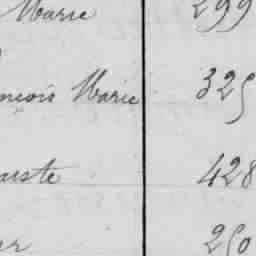 Marie 299
ançois Marie 325
aiste 428
er 250